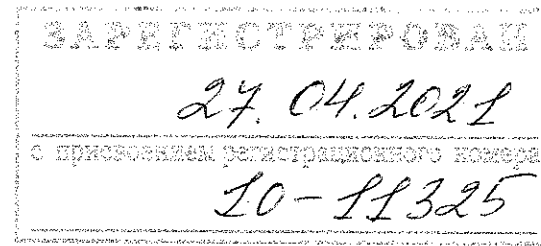 ЗАРЕГИСТРИРОВАН
27.04.2021
с присвоением регистрационного номера
10-11325